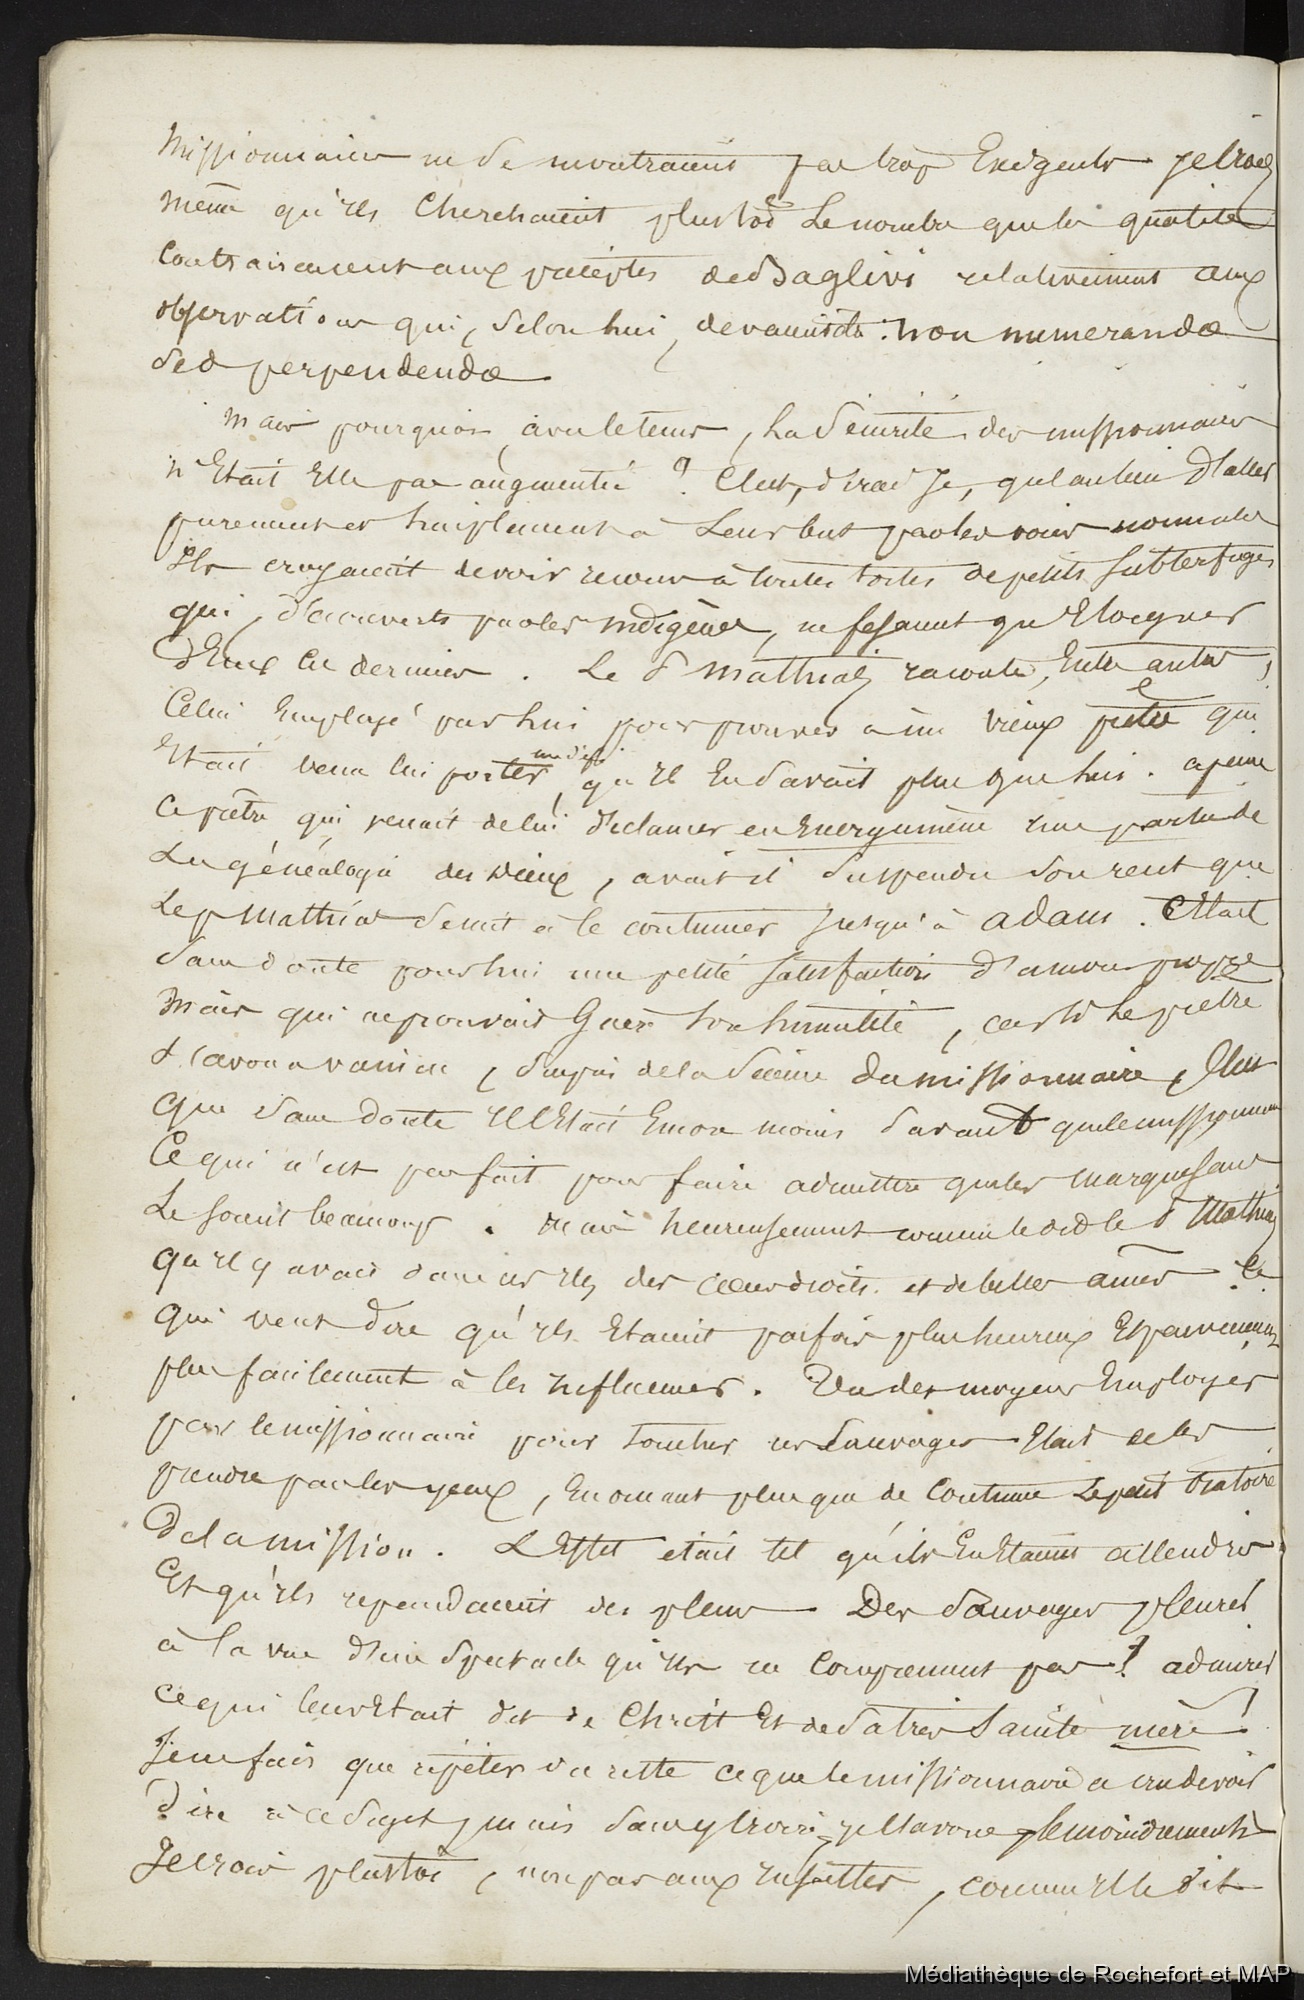 Missionnaires ne se montraient pas trop Exigents je crois
même qu'ils Cherchaient plustôt Le nombre que la qualité
Contrairement aux préceptes de Baglivi relativement aux
observations qui, selon lui, devaient être : non numerandæ
sed perpendendæ
mais pourquoi, avec le tems, La Sécurité des missionnaires
n'Etait Elle pas augmentée ? C'est, dirai Je, qu'au lieu d'aller
purement et simplement à Leur but par les voies normales
Ils croyaient devoir recourir à toutes sortes de petits Subterfuges
qui, découverts par les indigènes, ne fesaient qu'Eloigner
d'Eux ces derniers. Le P Mathias raconte, Entre autres,
Celui Employé par lui pour prouver à un vieux prêtre qui
Etait venu lui porter un défi, qu'Il En savait plus que lui. a peine
ce prêtre qui venait de lui déclamer en Energumène une partie de
La généalogie des dieux, avait il suspendu son récit que
Le p Mathias se mit à le continuer jusqu'à adam. C'Etait
sans doute pour lui une petite satisfaction d'amour propre
mais qui ne prouvait Guère son humilité, car si le prêtre
s'avoua vaincu, surpris de la Science du missionnaire, C'est
que sans doute il Etait Encore moins savant que le missionnaire
Ce qui n'est pas fait pour faire admettre que les Marquesans
Le soient beaucoup. Mais heureusement comme le dit le P Mathias
qu'il y avait dans ces Iles des cœurs droits et de belles âmes. Ce
qui veut dire qu'ils Etaient parfois plus heureux Et parvenaient
plus facilement à les influencer. Un des moyens Employés
par le missionnaire pour toucher ces Sauvages Etait de les
prendre par les yeux, En ornant plus que de Coutume Le petit Oratoire
De la mission. L'Effet était tel qu'ils En Etaient attendris
Et qu'ils repandaient des pleurs Des Sauvages pleurer
à la vue d'un Spectacle qu'ils ne Comprennent pas ! admirer
ce qui leur Etait dit de Christ Et de Sa très Sainte mère !
Je ne fais que répéter du reste ce que le missionnaire a cru devoir
dire à ce Sujet, mais sans y croire, je l'avoue, le moindrement
Je crois plustôt, non pas aux insultes, comme Il le dit